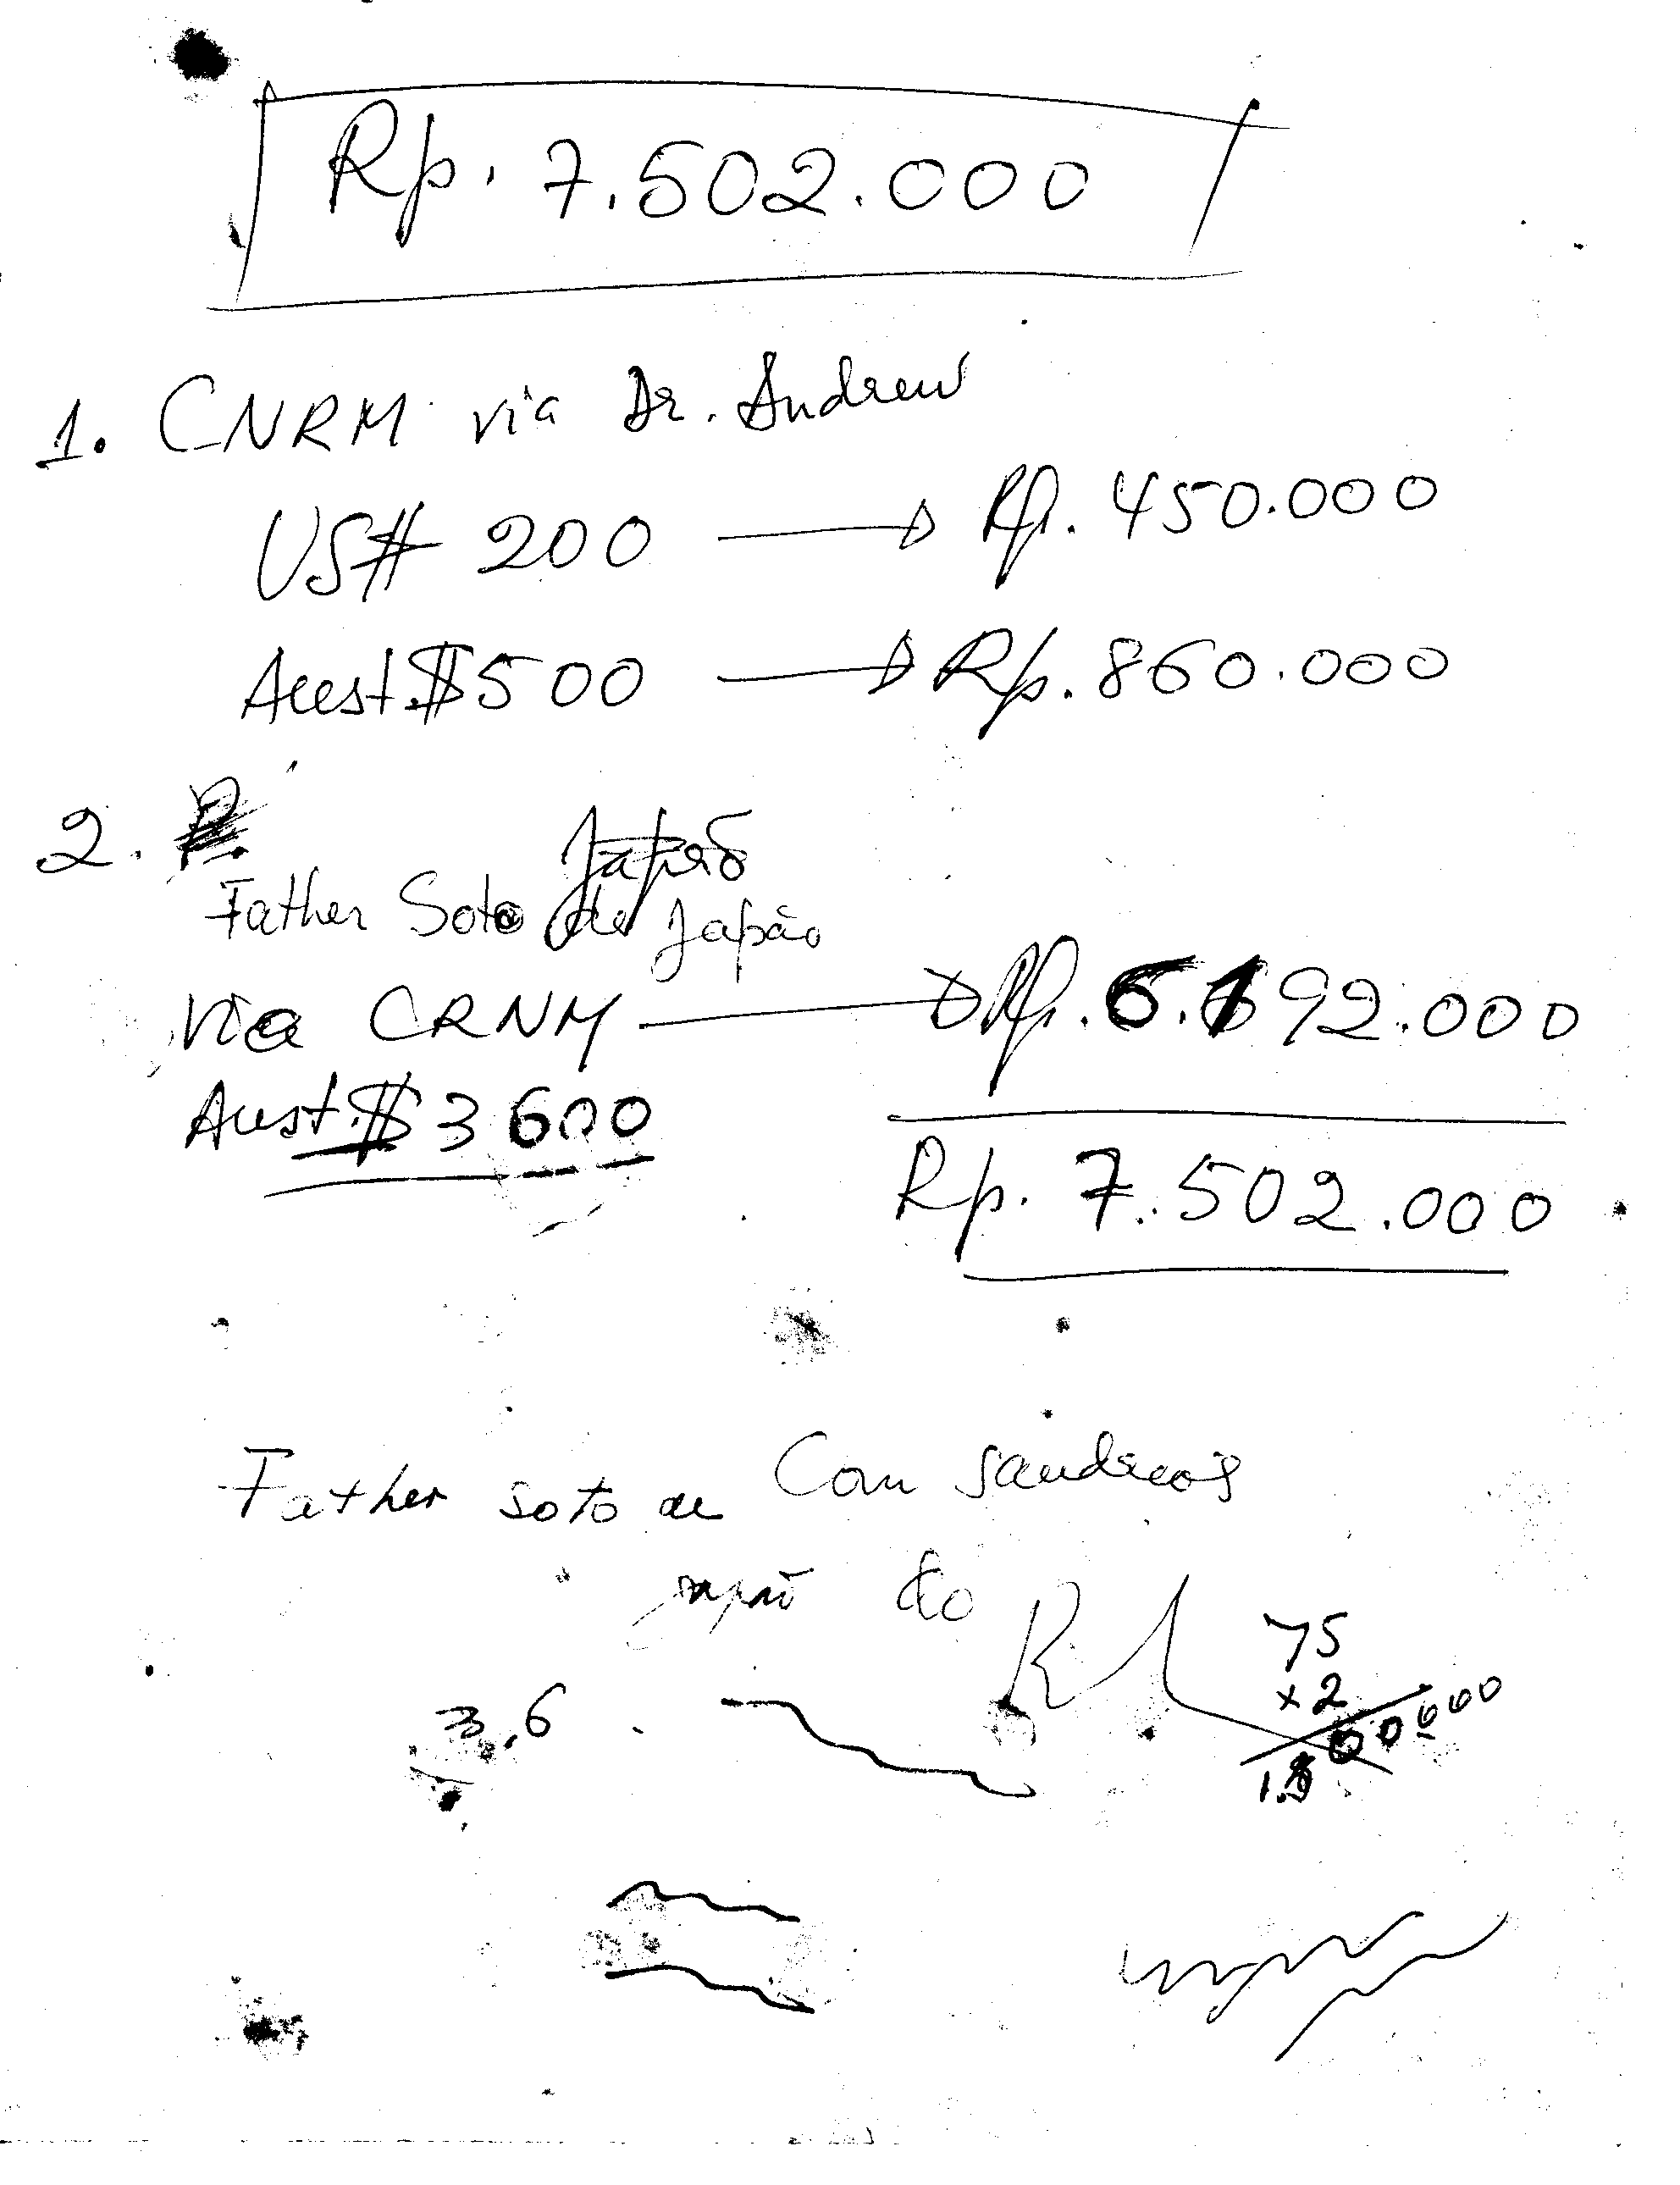 Rp. 7.502.000
1. CNRM via Dr. Andrew
US$ 200 → Rp. 450.000
Aust.$500 → Rp. 860.000
2.
Japão
Father Soto de Japão
via CRNM → Rp. 6.192.000
Aust.$ 3600
Rp. 7.502.000
Father soto de Com
Japão do
75
3.6
x 2